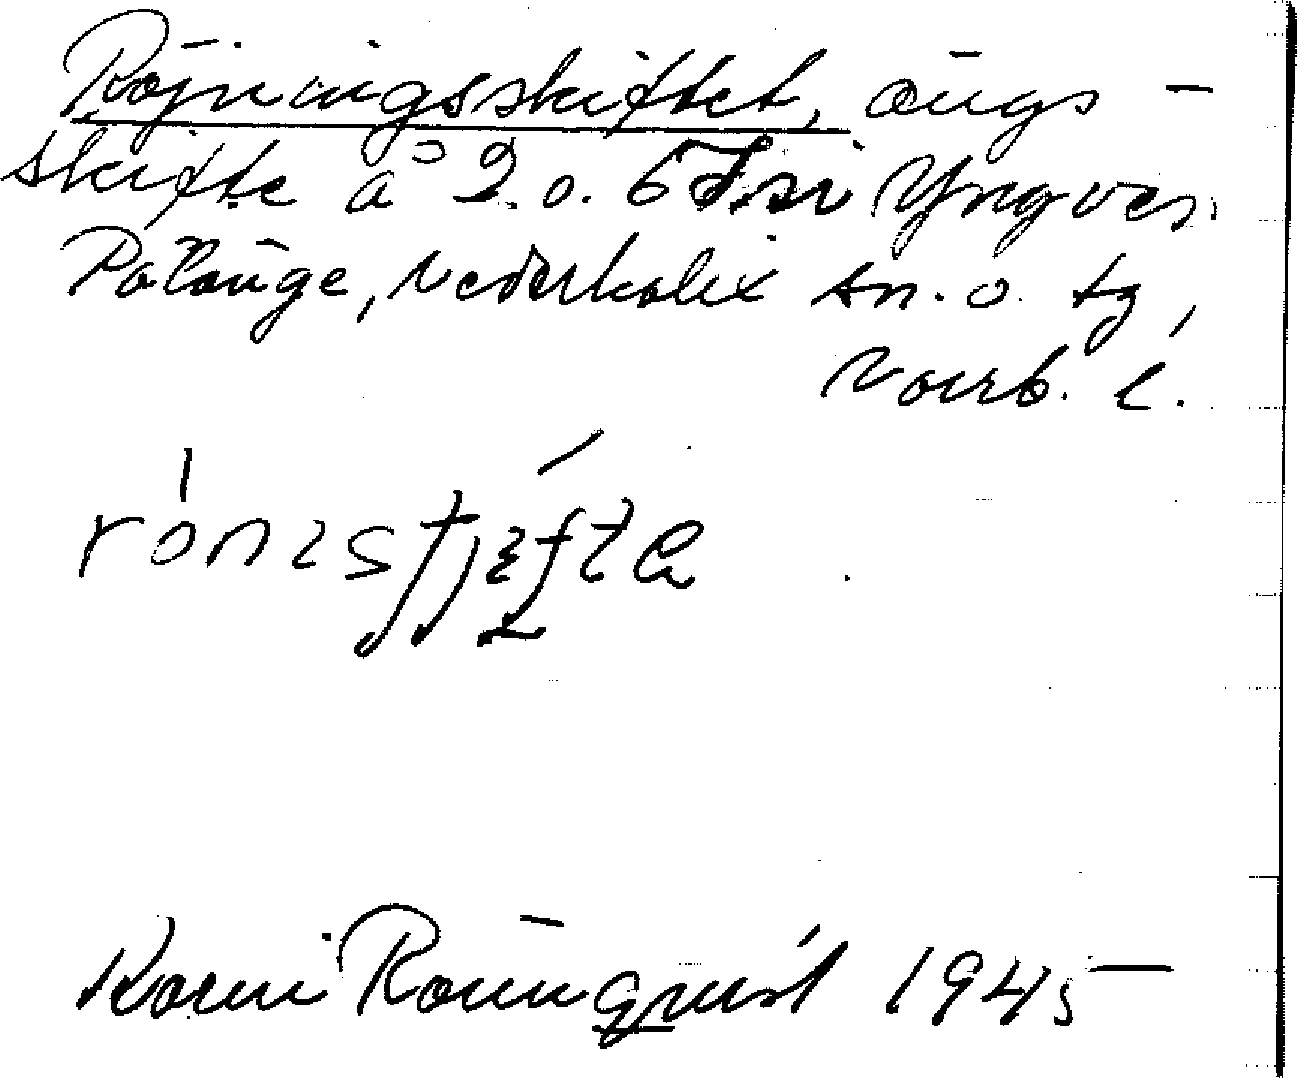 Röjningsskiftet, ängs-
skifte å 2. o. 6 i Yngves,
Pålänge, Nederkalix sn. o. tg,
Norrb. l.
Karin Rönnqvist 1945